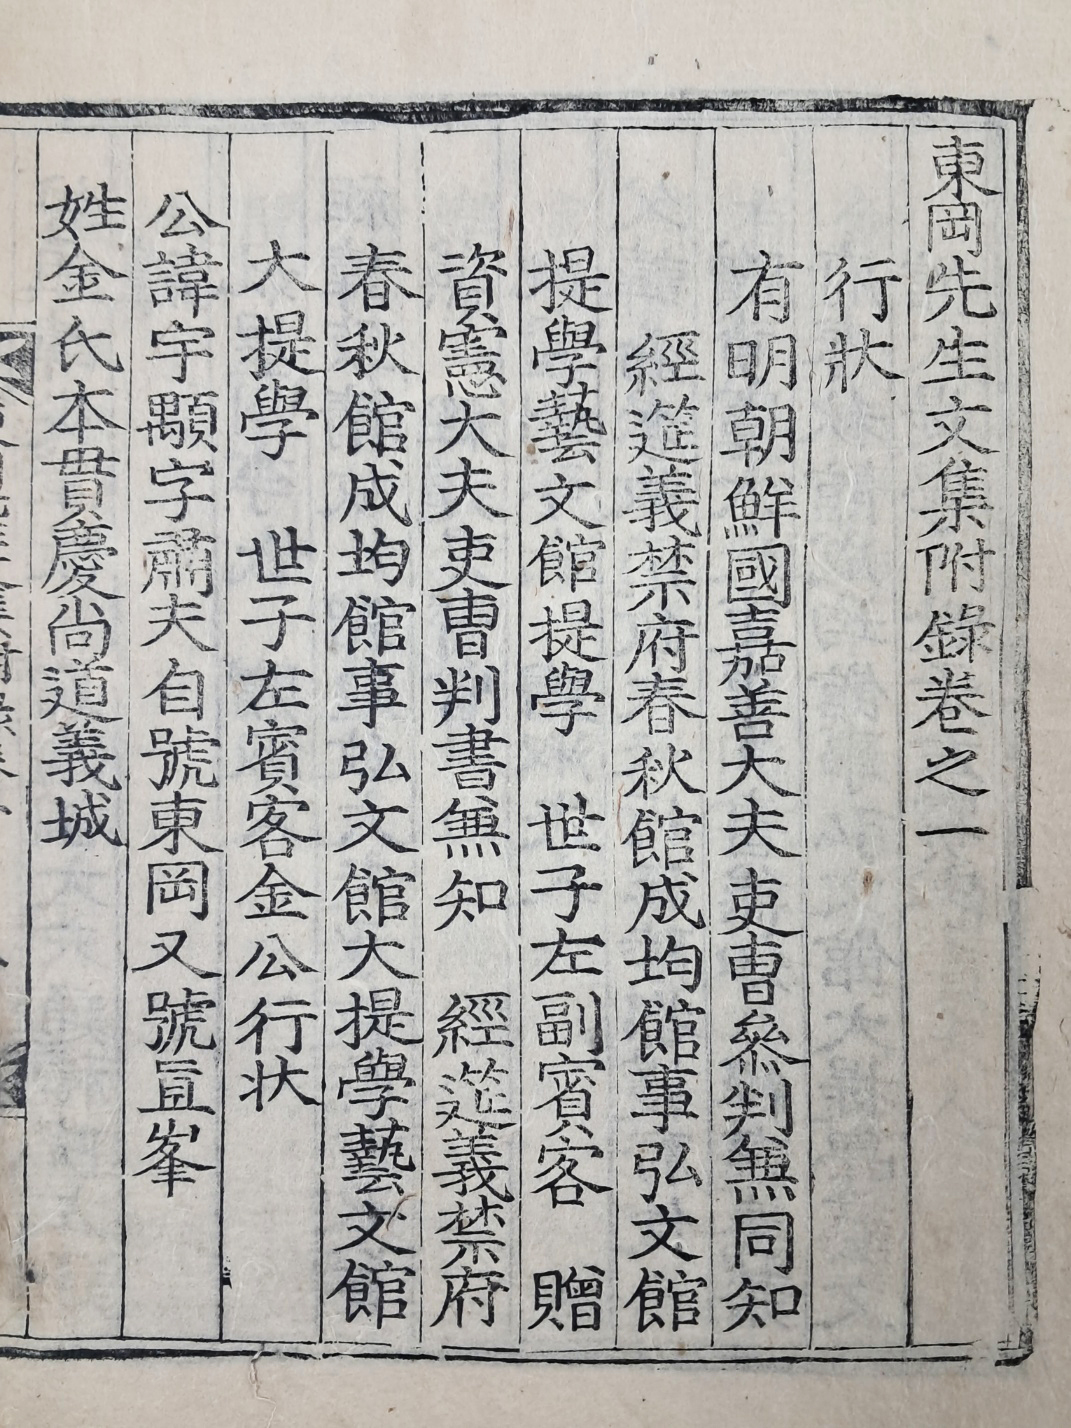 東岡先生文集附錄卷之一
行狀
有明朝鮮國嘉善大夫吏曺參判兼同知
經筵義禁府春秋館成均館事弘文館
提學藝文館提學 世子左副賓客 贈
資憲大夫吏曺判書兼知 經筵義禁府
春秋館成均館事弘文館大提學藝文館
大提學 世子左賓客金公行狀
公諱宇顒字肅夫自號東岡又號直峯
姓金氏本貫慶尙道義城